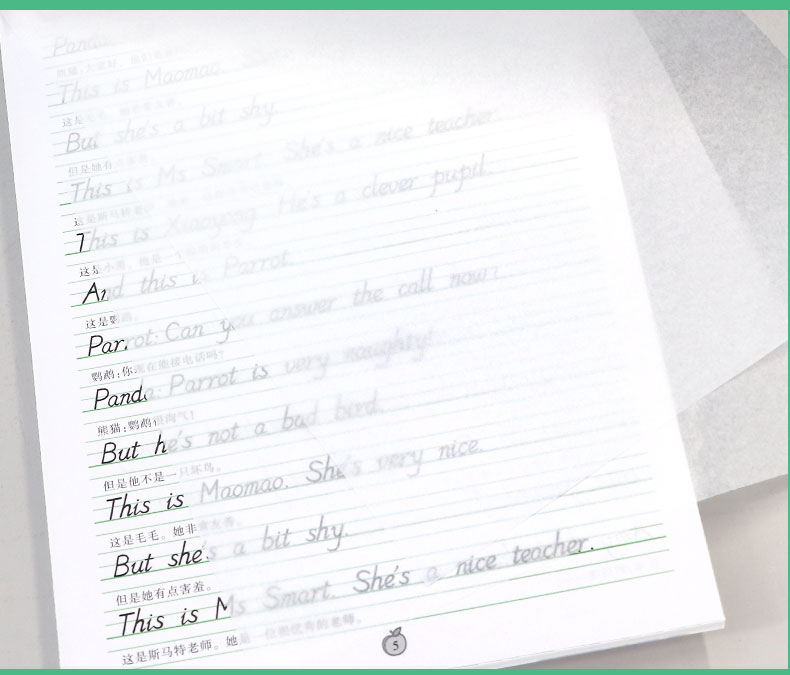 Panda
熊猫:大家好,
This is Maomao.
这是
But she's a bit shy.
但是她有
This is Ms Smart. She's a nice teacher.
这是斯马特老师
This is Xiaoyong. He's a clever pupil.
这是小勇。他是一个
And this is Parrot.
这是鹦鹉。
Parrot: Can you answer the call now?
鹦鹉:你现在能接电话吗?
Panda: Parrot is very naughty!
熊猫:鹦鹉很淘气!
But he's not a bad bird.
但是他不是一只坏鸟。
This is Maomao. She's very nice.
这是毛毛。她非常友善。
But she's a bit shy.
但是她有点害羞。
This is Ms Smart. She's a nice teacher.
这是斯马特老师。她是一位很优秀的老师。
5